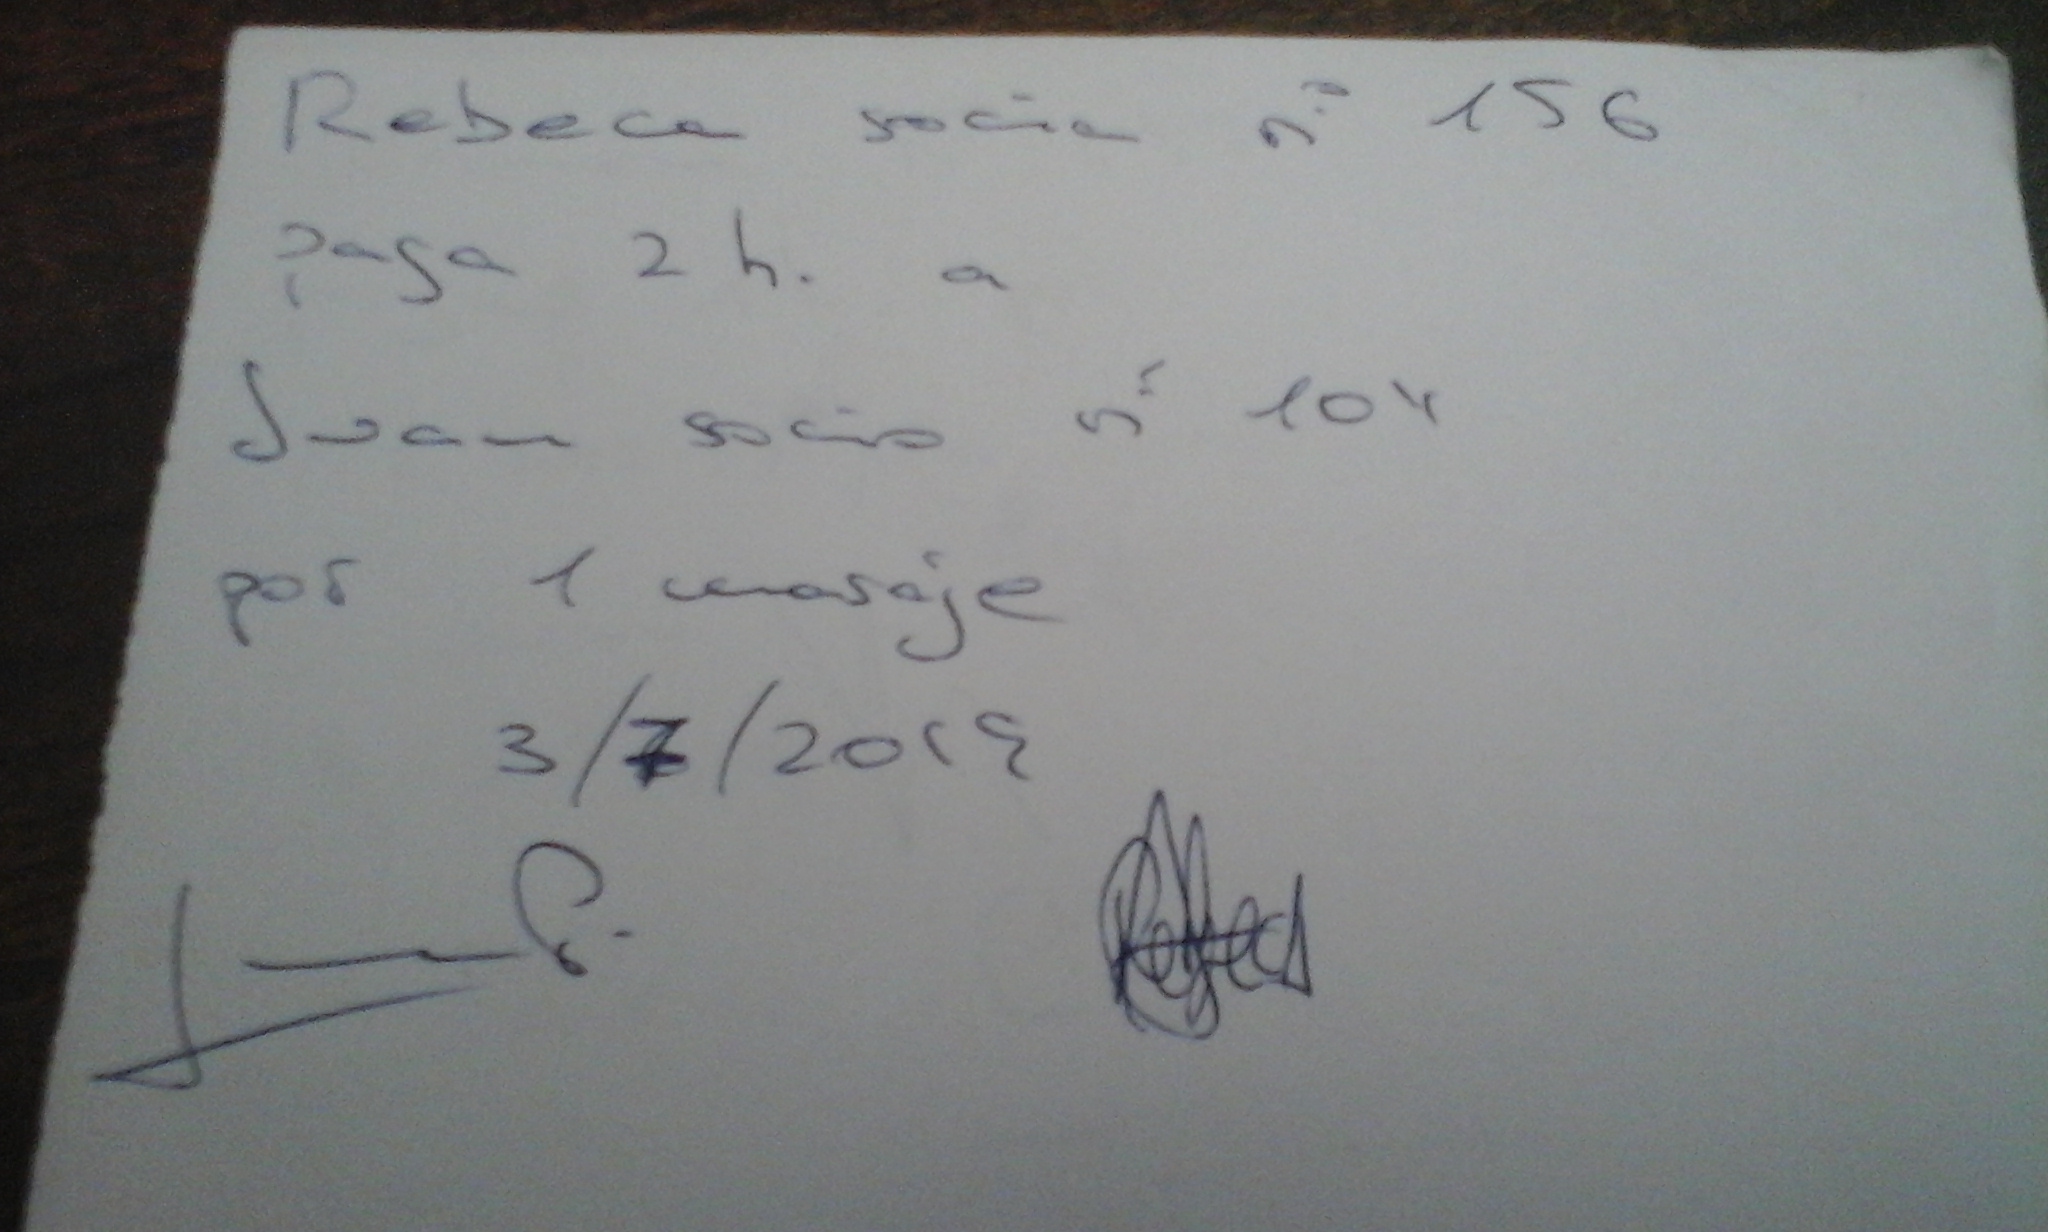 Rebeca socia nº 156
paga 2 h. a
Juan socio nº 104
por 1 masaje
3/7/2019